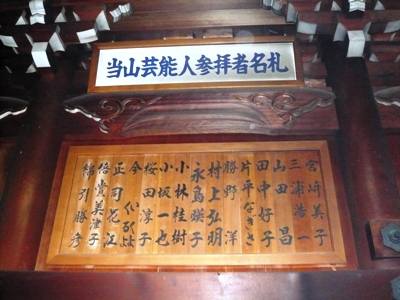 当山芸能人参拝者名札
宮崎美子
三浦浩一
山田昌
田中好子
片平なぎさ
勝野洋
村上弘明
永島暎子
小坂一也
小林桂樹
桜田淳子
今いくよ
くるよ
正司花江
倍賞美津子
綿引勝彦